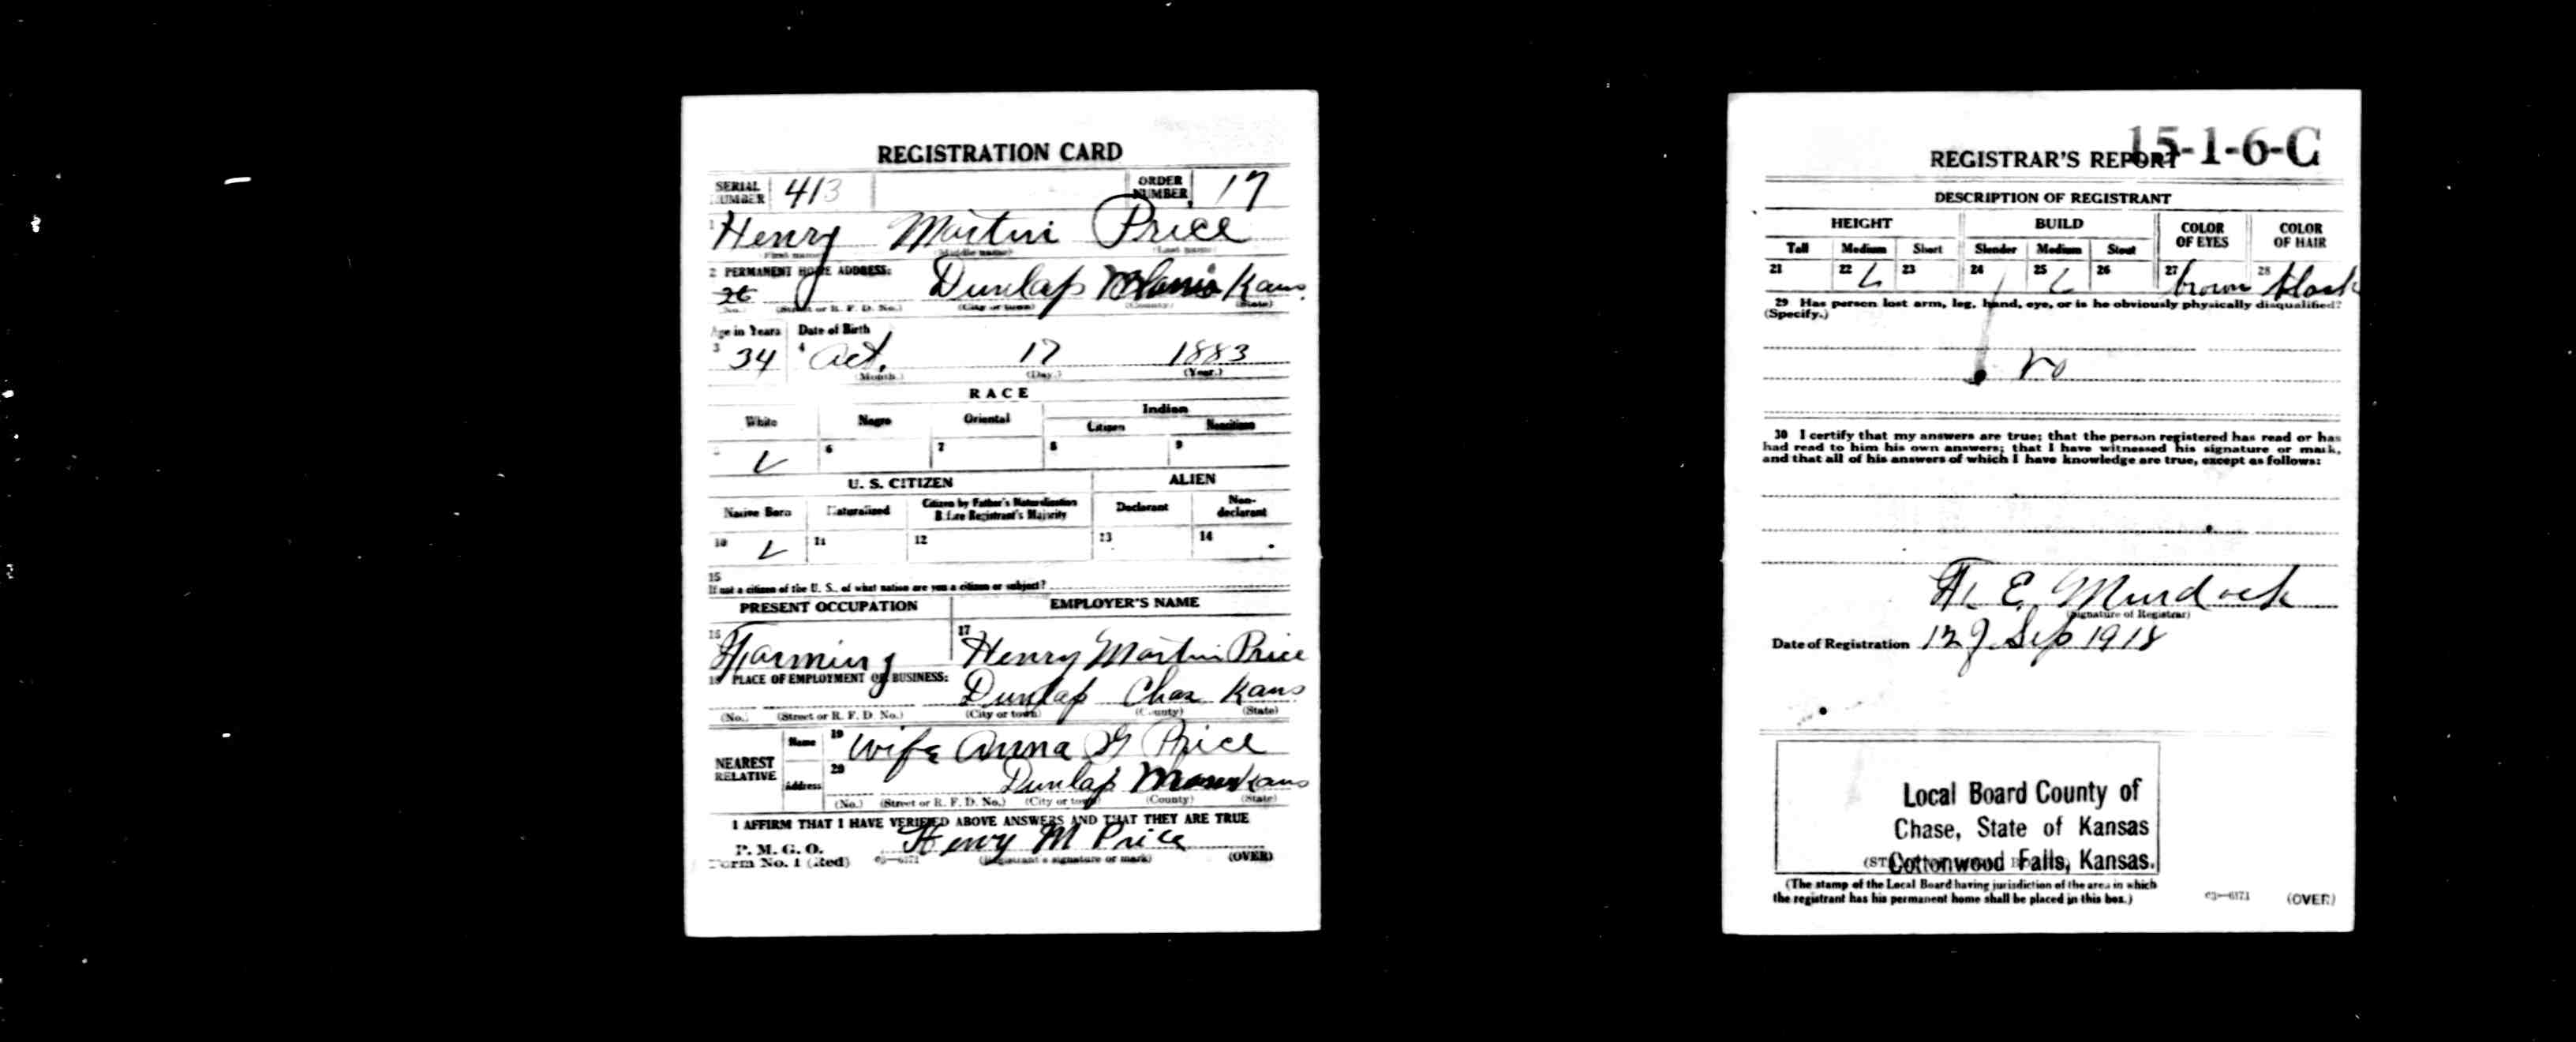 REGISTRATION CARD
SERIAL NUMBER 413 ORDER NUMBER 17
1 Henry Martin Price
(First name) (Middle name) (Last name)
2 PERMANENT HOME ADDRESS:
Dunlap Kans.
(No.) (Street or R. F. D. No.) (City or town) (County) (State)
Age in Years Date of Birth
3 34 4 Oct. 17 1883
(Month.) (Day.) (Year.)
RACE
White Negro Oriental Indian
Citizen Noncitizen
6 7 8 9
U. S. CITIZEN ALIEN
Native Born Naturalized Citizen by Father's Naturalization Before Registrant's Majority Declarant Non-declarant
10 11 12 13 14
15
If not a citizen of the U. S., of what nation are you a citizen or subject?
PRESENT OCCUPATION EMPLOYER'S NAME
16 Farming 17 Henry Martin Price
18 PLACE OF EMPLOYMENT OR BUSINESS:
Dunlap Chas Kans
(No.) (Street or R. F. D. No.) (City or town) (County) (State)
NEAREST RELATIVE Name 19 Wife Anna G Price
Address 20 Dunlap Kans
(No.) (Street or R. F. D. No.) (City or town) (County) (State)
I AFFIRM THAT I HAVE VERIFIED ABOVE ANSWERS AND THAT THEY ARE TRUE
P. M. G. O.
Form No. 1 (Red) 03—6171 Henry M Price
(Registrant's signature or mark) (OVER)
15-1-6-C
REGISTRAR'S REPORT
DESCRIPTION OF REGISTRANT
HEIGHT BUILD COLOR OF EYES COLOR OF HAIR
Tall Medium Short Slender Medium Stout
21 22 23 24 25 26 27 brown 28 black
29 Has person lost arm, leg, hand, eye, or is he obviously physically disqualified?
(Specify.)
no
30 I certify that my answers are true; that the person registered has read or has
had read to him his own answers; that I have witnessed his signature or mark,
and that all of his answers of which I have knowledge are true, except as follows:
E. Murdock
(Signature of Registrar)
Date of Registration 12 Sep 1918
Local Board County of
Chase, State of Kansas
Cottonwood Falls, Kansas.
(The stamp of the Local Board having jurisdiction of the area in which
the registrant has his permanent home shall be placed in this box.)
03—6171 (OVER)